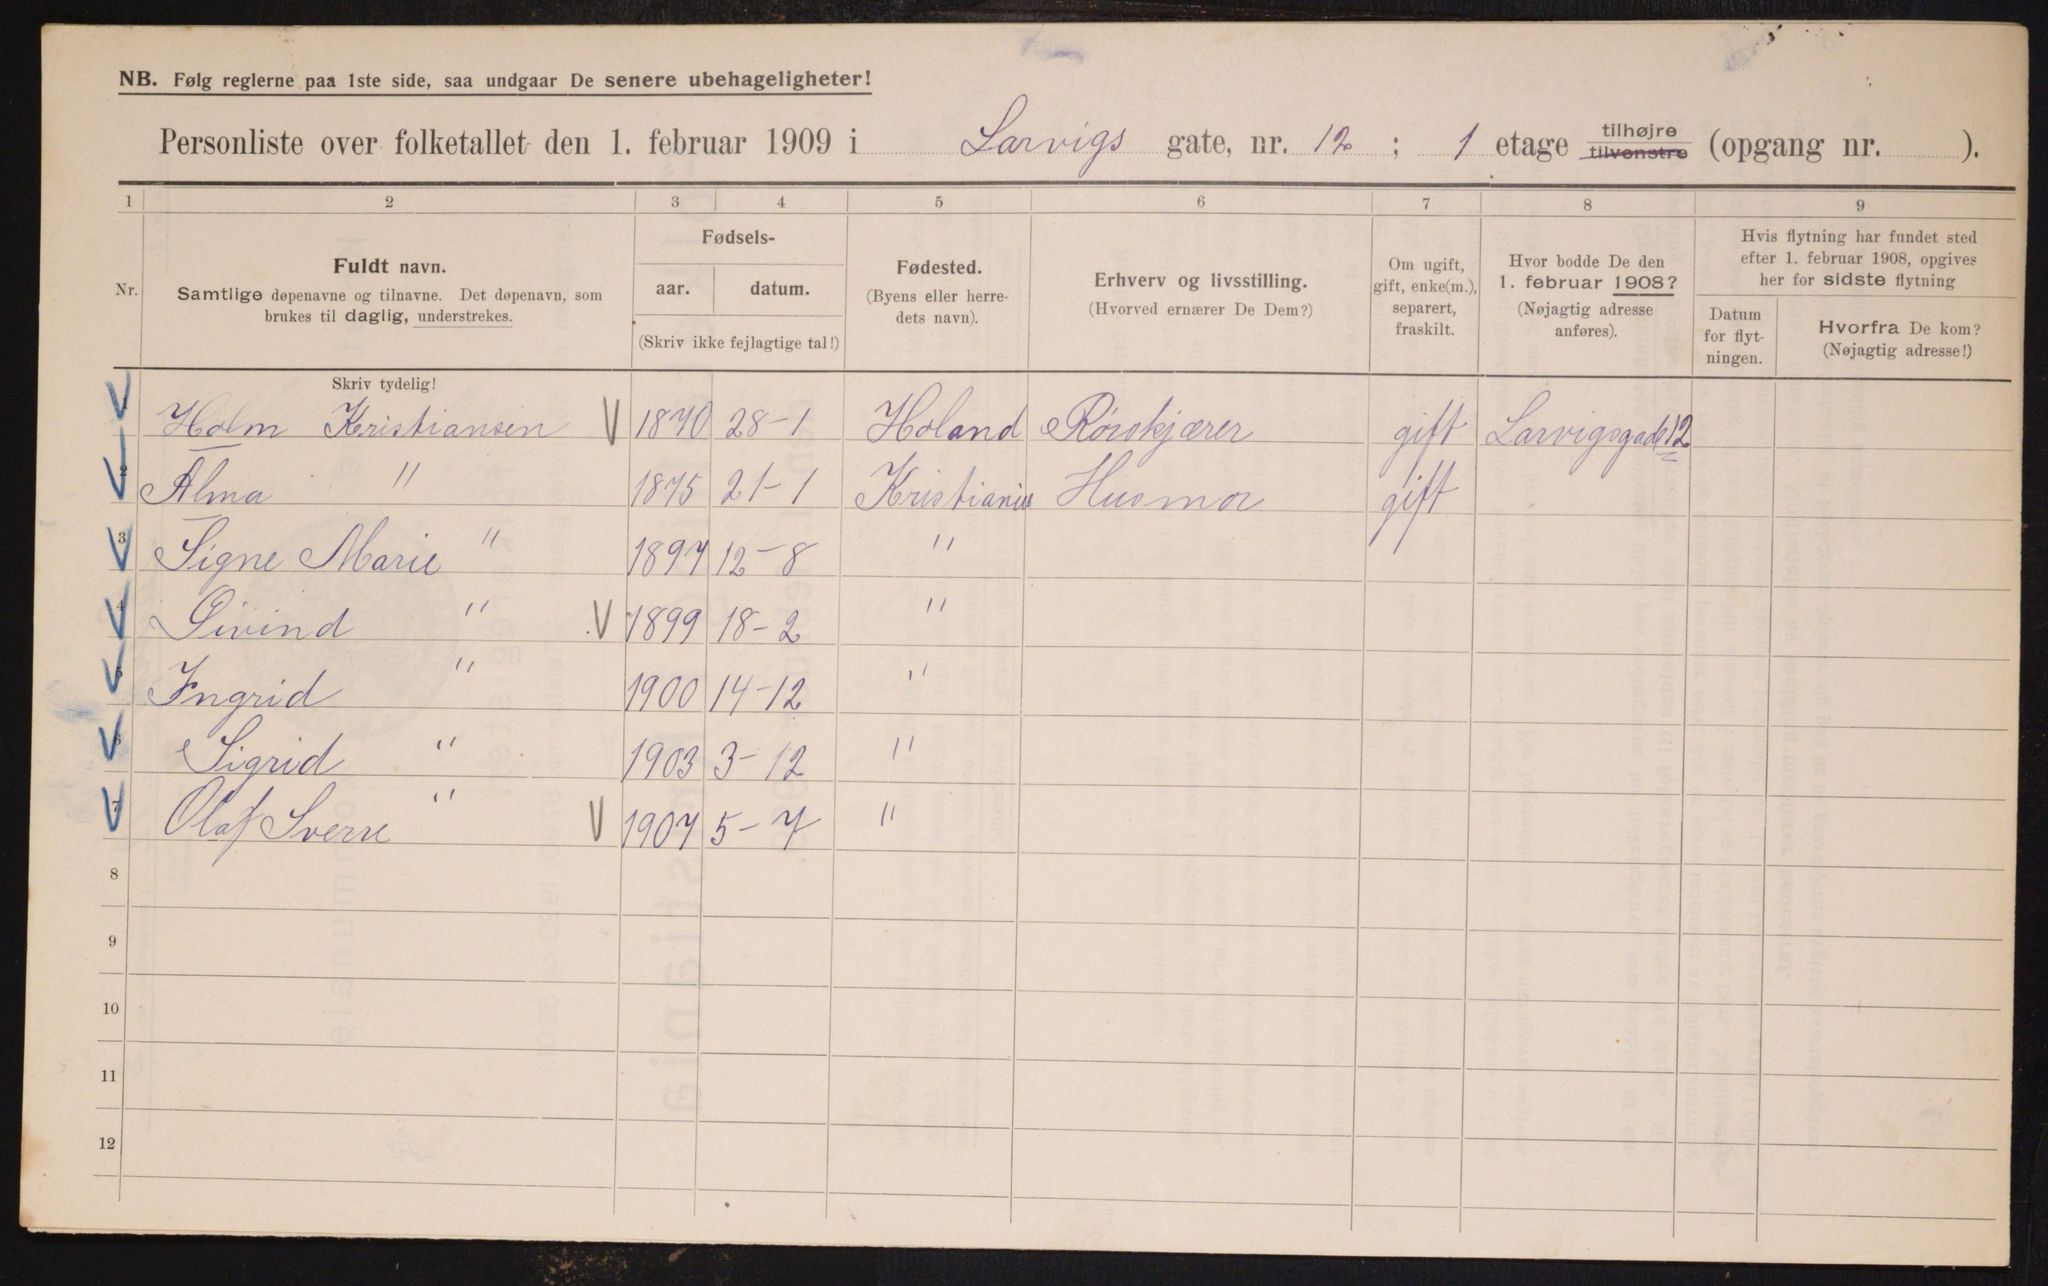 NB. Følg reglerne paa 1ste side, saa undgaar De senere ubehageligheter!
Personliste over folketallet den 1. februar 1909 i Larvigs gate, nr. 12 ; 1 etage tilhøjre tilvenstre (opgang nr. ).
1 2 3 4 5 6 7 8 9
Nr.
Fuldt navn.
Samtlige døpenavne og tilnavne. Det døpenavn, som
brukes til daglig, understrekes.
Skriv tydelig!
Fødsels-
aar. datum.
(Skriv ikke fejlagtige tal!)
Fødested.
(Byens eller herre-
dets navn).
Erhverv og livsstilling.
(Hvorved ernærer De Dem?)
Om ugift,
gift, enke(m.),
separert,
fraskilt.
Hvor bodde De den
1. februar 1908?
(Nøjagtig adresse
anføres).
Hvis flytning har fundet sted
efter 1. februar 1908, opgives
her for sidste flytning
Datum
for flyt-
ningen.
Hvorfra De kom?
(Nøjagtig adresse!)
Holm Kristiansen V 1870 28-1 Holand gift Larvigsgade 12
2 Alma " 1875 21-1 Kristiania Husmor gift
3 Signe Marie " 1897 12-8 "
4 Oivind " V 1899 18-2 "
5 Ingrid " 1900 14-12 "
6 Sigrid " 1903 3-12 "
7 Olaf Sverre " V 1907 5-7 "
8
9
10
11
12